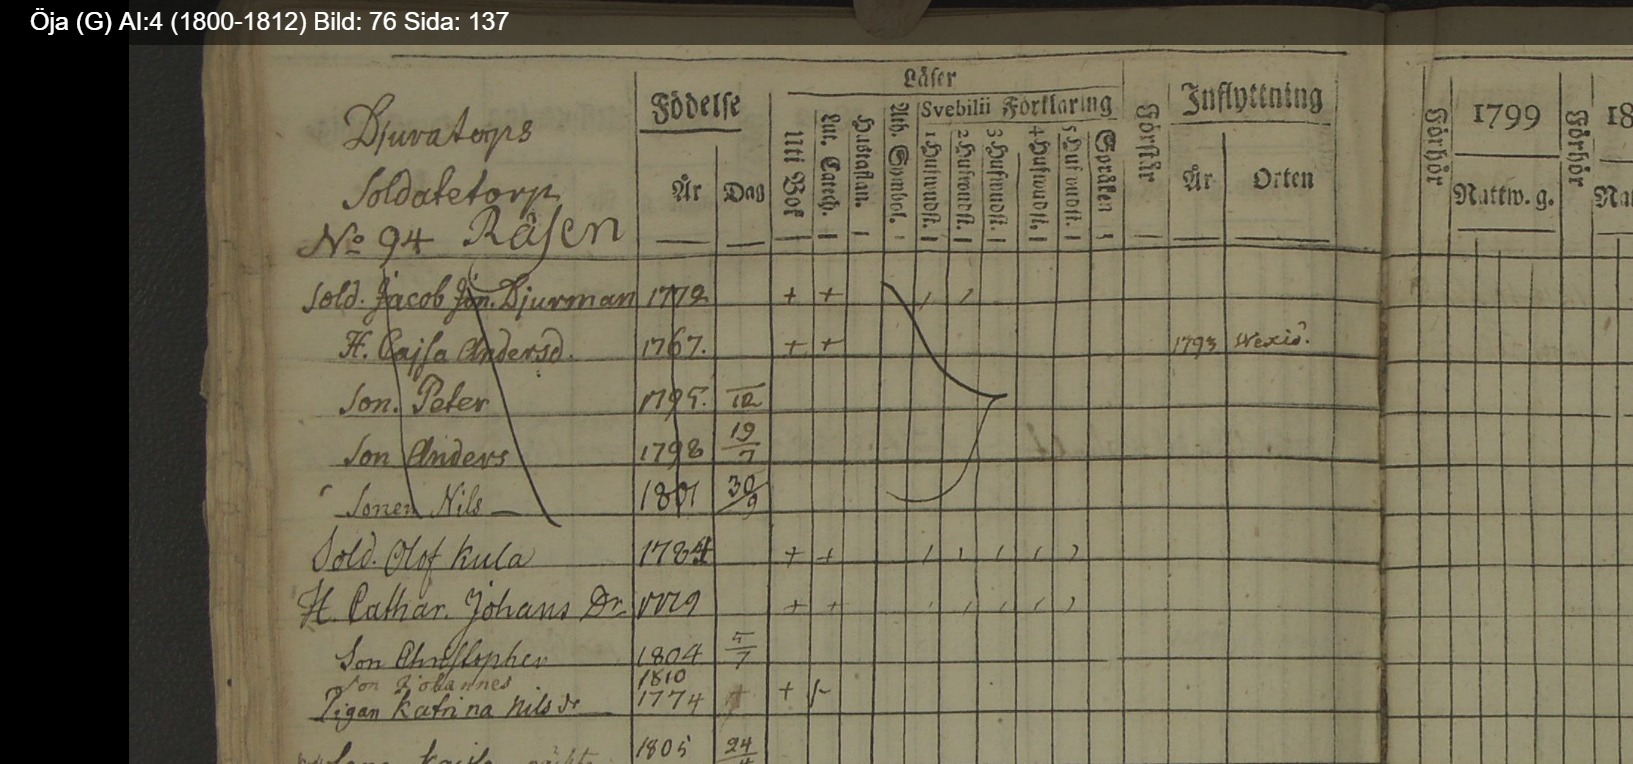 Öja (G) AI:4 (1800-1812) Bild: 76 Sida: 137
Djuratorps
Soldatetorp
No 94 Råsen
Födelse
År Dag
Läser
Uti Bok
Lut. Catech.
Hustaflan.
Ath. Symbol.
Svebilii Förklaring
1 Hufwudst.
2 Hufwudst.
3 Hufwudst.
4 Hufwudst.
5 Hufwudst.
Förstår
Inflyttning
År Orten
Förhör
1799
Nattw. g.
Förhör
18
Sold. Jacob Jön. Djurman 1772 + +
H. Cajsa Andersd. 1767. + + 1793 Wexiö
Son. Peter 1795. 12
Son Anders 1798 19/7
Sonen Nils 1801 30/9
Sold. Olof Kula 1784 + +
H. Cathar. Johans Dr. + +
Son Christopher 1804 5/7
Son Johannes 1810
Pigan Katrina Nils dr 1774 +
1805 24